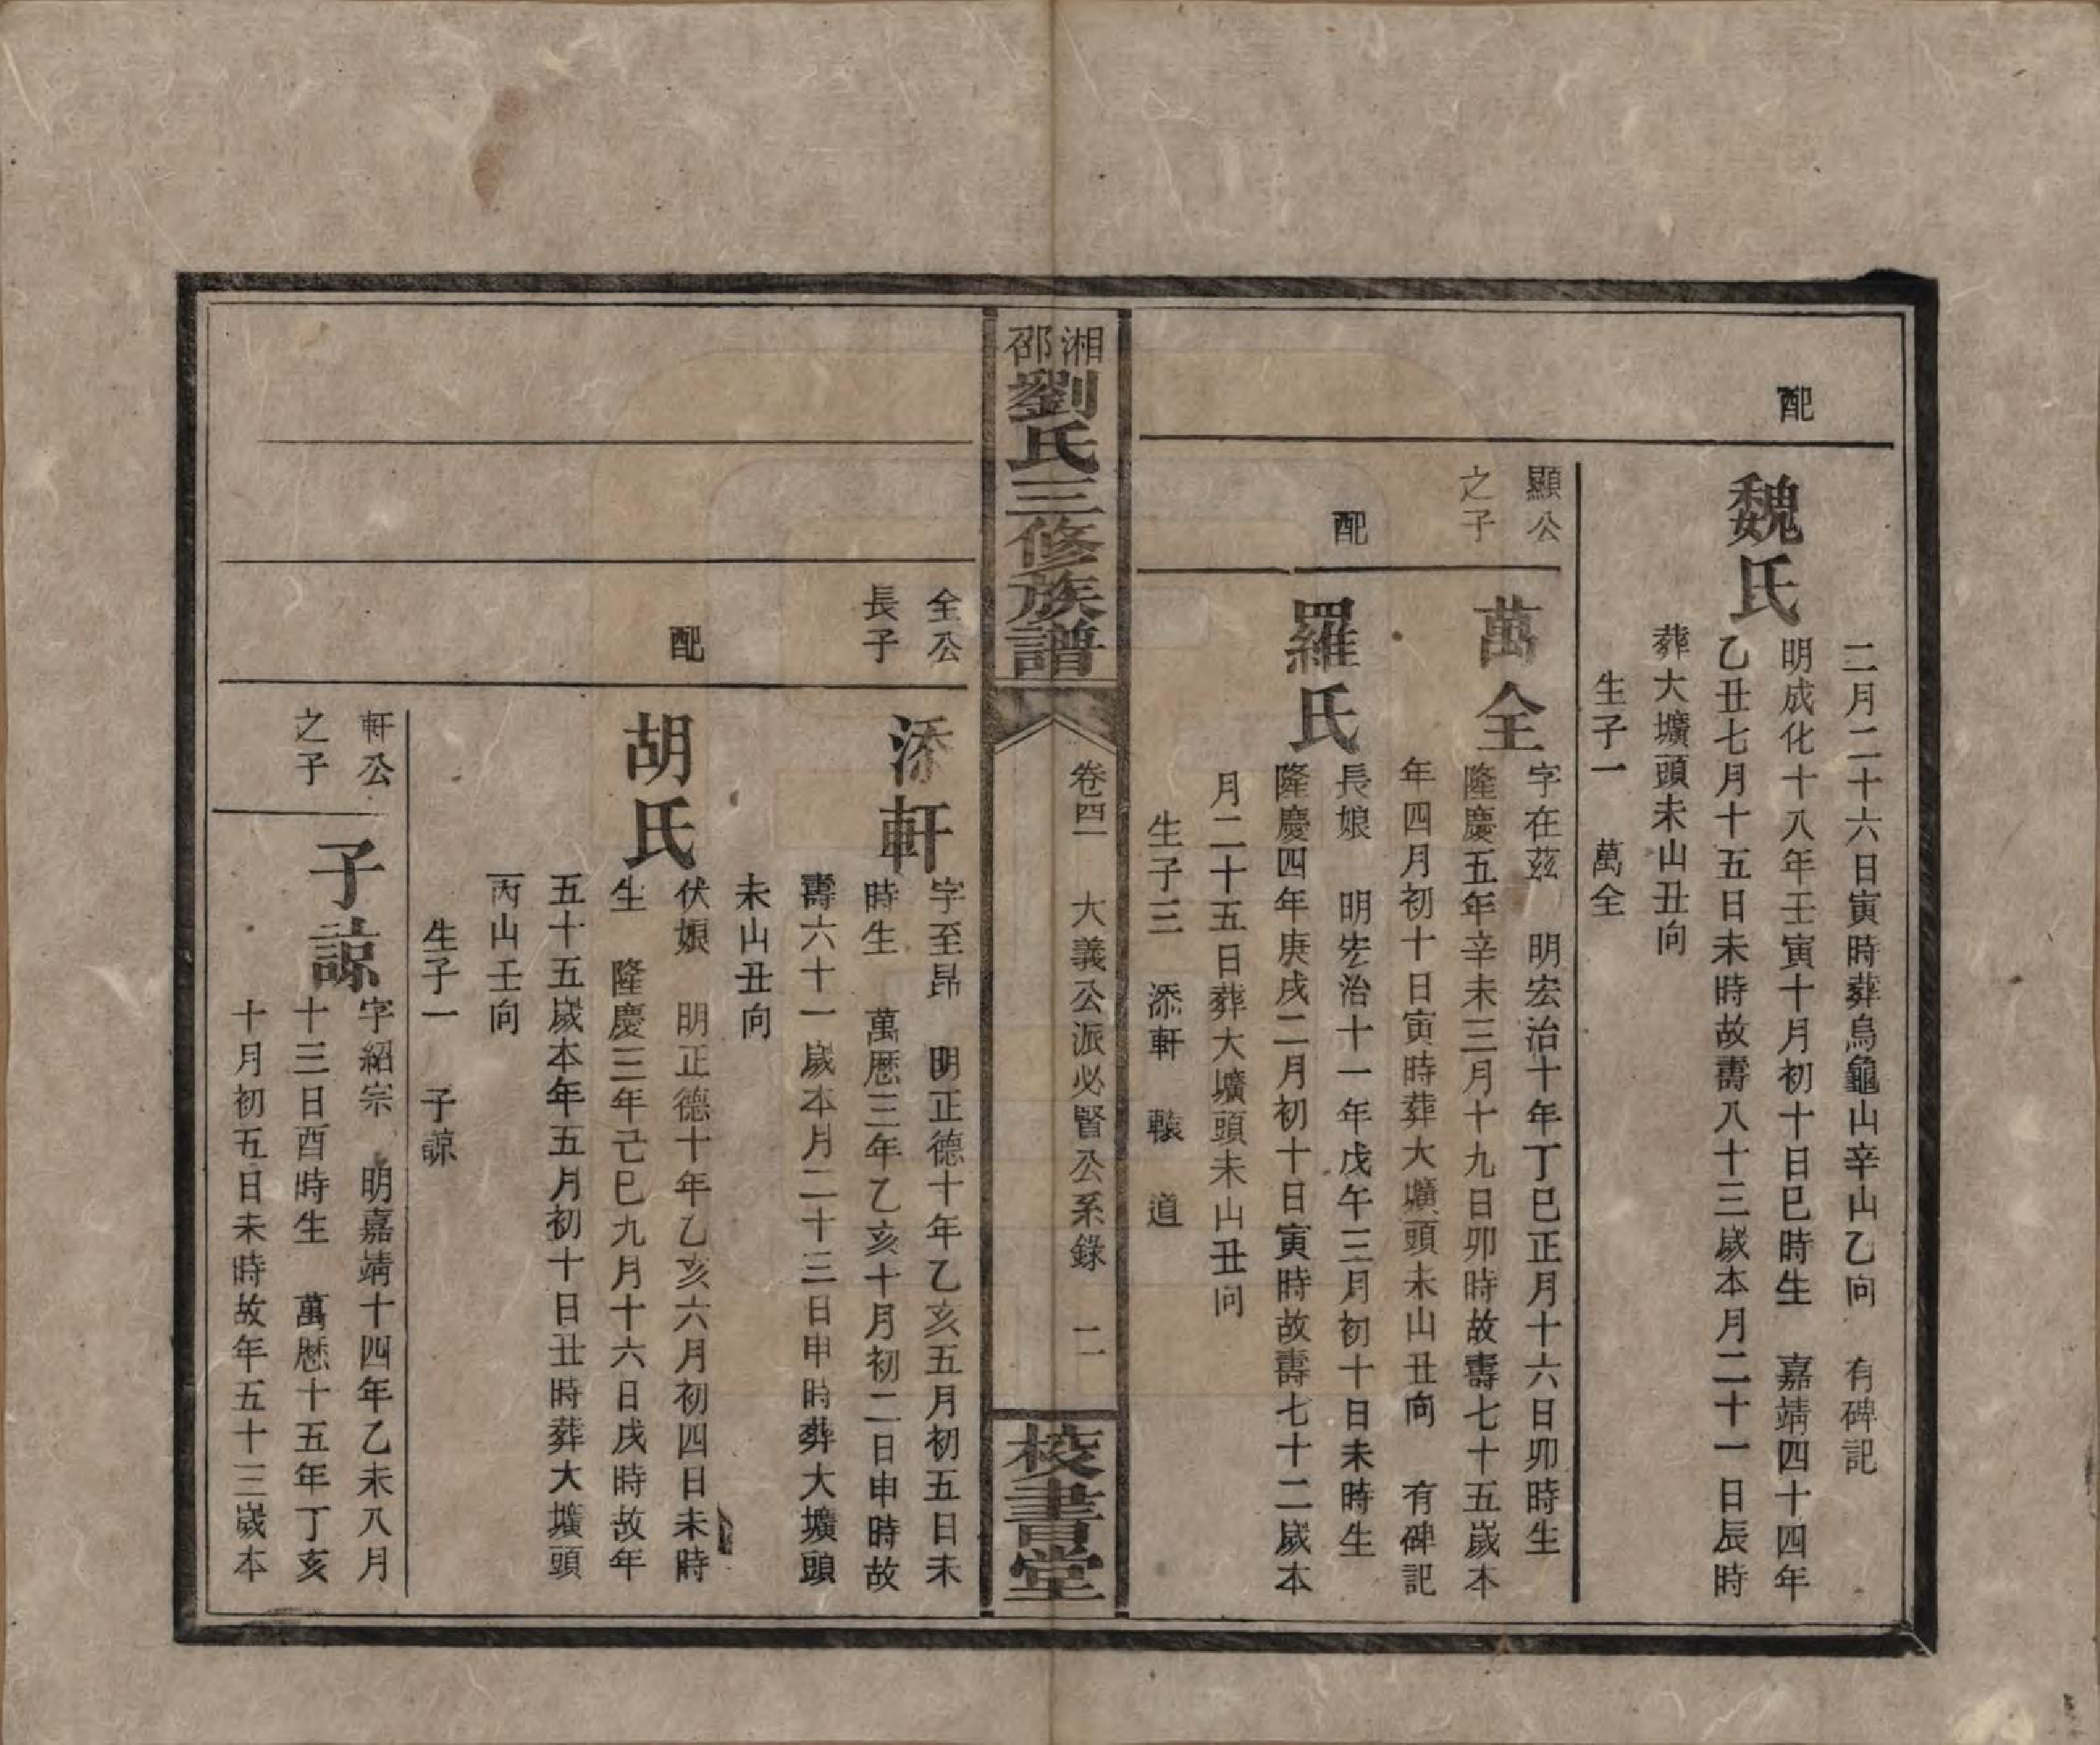 二月二十六日寅時葬烏龜山辛山乙向　有碑記
配
魏氏
明成化十八年壬寅十月初十日巳時生　嘉靖四十四年
乙丑七月十五日未時故壽八十三歲本月二十一日辰時
葬大壙頭未山丑向
生子一　萬全
顯公
之子
萬全
字在茲　明宏治十年丁巳正月十六日卯時生
隆慶五年辛未三月十九日卯時故壽七十五歲本
年四月初十日寅時葬大壙頭未山丑向　有碑記
配
羅氏
長娘　明宏治十一年戊午三月初十日未時生
隆慶四年庚戌二月初十日寅時故壽七十二歲本
月二十五日葬大壙頭未山丑向
生子三　添軒　轅　道
湘
邵
劉氏三修族譜
卷四　大義公派必賢公系錄　二
校書堂
全公
長子
添軒
字至昂　明正德十年乙亥五月初五日未
時生　萬歷三年乙亥十月初二日申時故
壽六十一歲本月二十三日申時葬大壙頭
未山丑向
配
胡氏
伏娘　明正德十年乙亥六月初四日未時
生　隆慶三年己巳九月十六日戌時故年
五十五歲本年五月初十日丑時葬大壙頭
丙山壬向
生子一　子諒
軒公
之子
子諒
字紹宗　明嘉靖十四年乙未八月
十三日酉時生　萬歷十五年丁亥
十月初五日未時故年五十三歲本